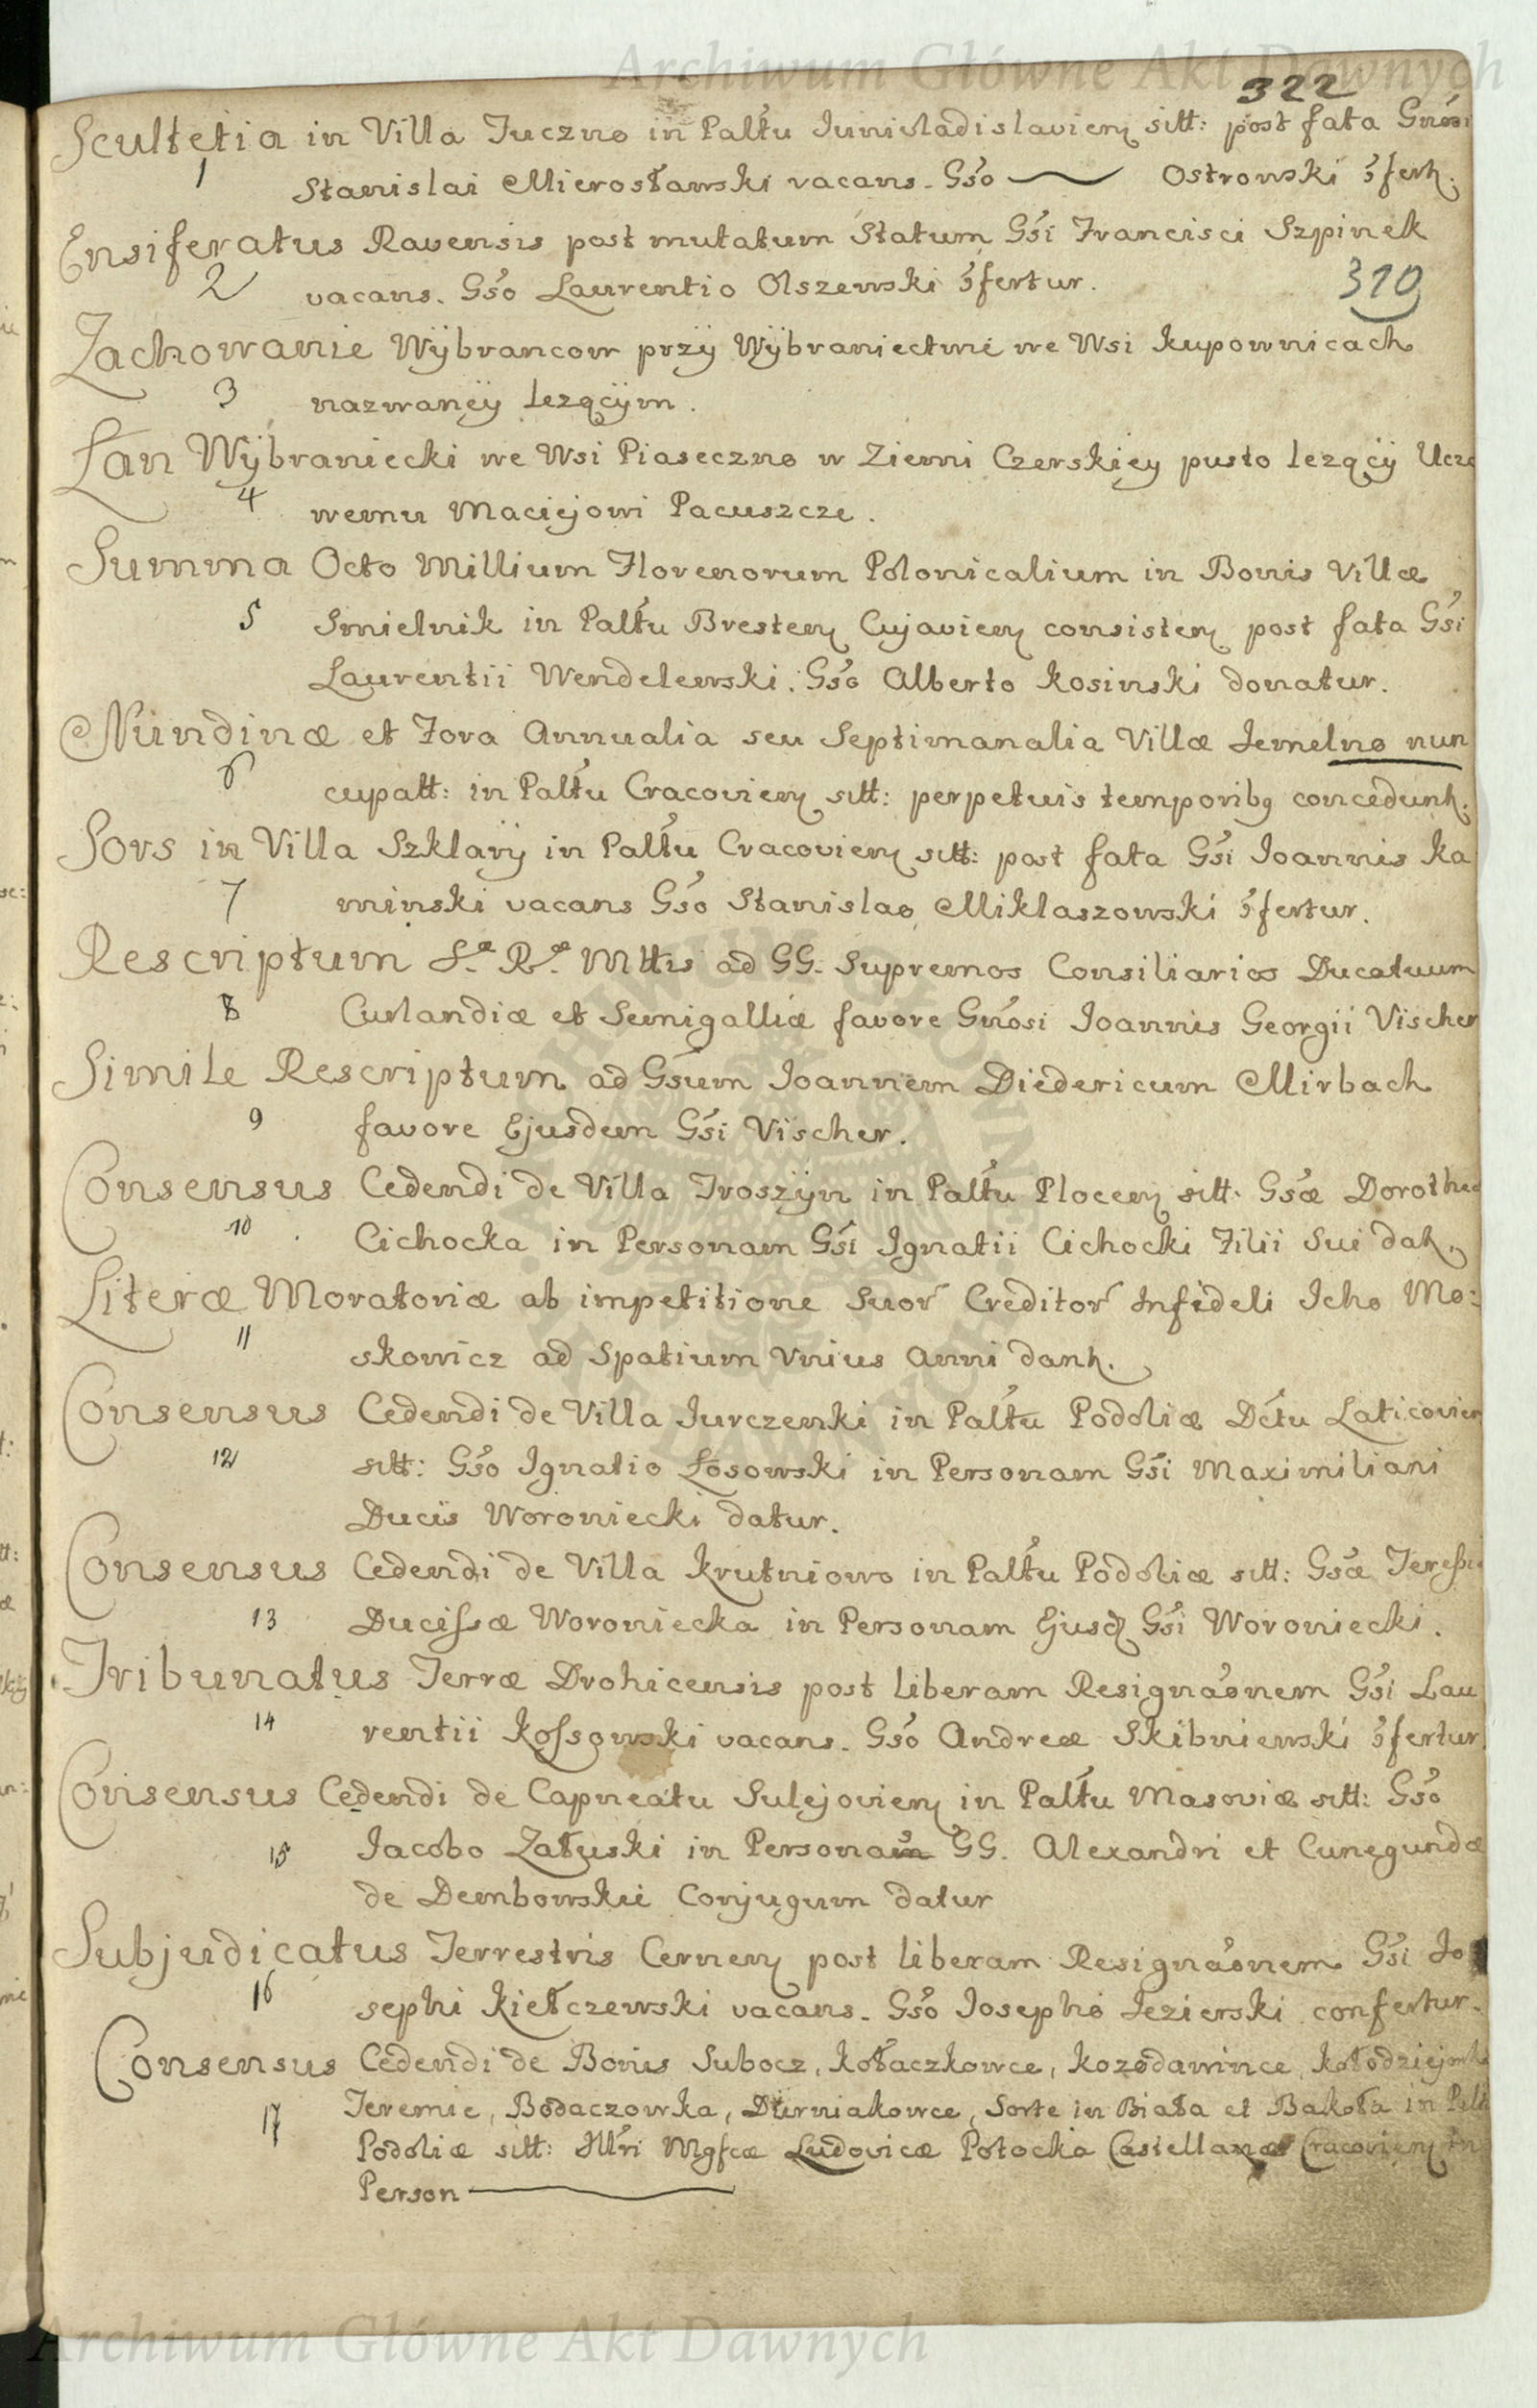 Archiwum Główne Akt Dawnych
322
Scultetia in Villa Tuczno in Palttu Iunivladislavien sitt: post fata Gnosi
1 Stanislai Mierosławski vacans. Gso Ostrowski 9fertr.
Ensiferatus Ravensis post mutatum Statum Gsi Francisci Szpinek
319
2 vacans. Gso Laurentio Olszewski 9fertur.
Zachowanie Wÿbrancow przÿ Wÿbraniectwie we Wsi Kupownicach
3 nazwaneÿ lezącÿm.
Łan Wÿbraniecki we Wsi Piaseczno w Ziemi Czerskiey pusto lezącÿ Uczci
4 wemu Maciejowi Pacuszcze.
Summa Octo Millium Florenorum Polonicalium in Bonis Villæ
5 Smielnik in Palttu Bresten Cujavien consisten post fata Gsi
Laurentii Wendelewski. Gso Alberto Kosinski donatur.
Nundinæ et Fora Annualia seu Septimanalia Villæ Jemelno nun
6 cupatt: in Palttu Cracovien sitt: perpetuis temporibq concedunt.
Sors in Villa Szklarÿ in Palttu Cracovien sitt: post fata Gsi Joannis Ka
7 minski vacans Gso Stanislao Miklaszowski 9fertur.
Rescriptum S.æ R.æ Mttis ad GG. Supremos Consiliarios Ducatuum
8 Curlandiæ et Semigalliæ favore Gnosi Joannis Georgii Vischer
Simile Rescriptum ad Gsum Joannem Diedericum Mirbach
9 favore Ejusdem Gsi Vischer.
Consensus Cedendi de Villa Troszÿn in Palttu Plocen sitt: Gsæ Dorotheæ
10 Cichocka in Personam Gsi Ignatii Cichocki Filii Sui datr.
Literæ Moratoriæ ab impetitione Suor Creditor Infideli Icho Mo:
11 skowicz ad Spatium Vnius Anni dantr.
Consensus Cedendi de Villa Jurczenki in Palttu Podoliæ Dctu Laticovien
12 sitt: Gso Ignatio Łosowski in Personam Gsi Maximiliani
Ducis Woroniecki datur.
Consensus Cedendi de Villa Krutniowo in Palttu Podoliæ sitt: Gsæ Teressiæ
13 Ducissæ Woroniecka in Personam Ejusd Gsi Woroniecki.
Tribunatus Terræ Drohicensis post liberam Resignaonem Gsi Lau
14 rentii Kossowski vacans. Gso Andreæ Skibniewski 9fertur.
Consensus Cedendi de Capneatu Sulejovien in Palttu Masoviæ sitt: Gso
15 Jacobo Załuski in Personam GG. Alexandri et Cunegundæ
de Dembowskie Conjugum datur
Subjudicatus Terrestris Cernen post liberam Resignaonem Gsi Jo
16 sephi Kiełczewski vacans. Gso Josepho Jezierski confertur.
Consensus Cedendi de Bonis Subocz, Kołaczkowce, Kozodawince,
17 Jeremie, Bodaczowka, Durniakowce, Sorte in Biała et Bakota in Paltt
Podoliæ sitt: Illri Mgfcæ Ludovicæ Potocka Castellanæ Cracovien in
Person
Archiwum Główne Akt Dawnych